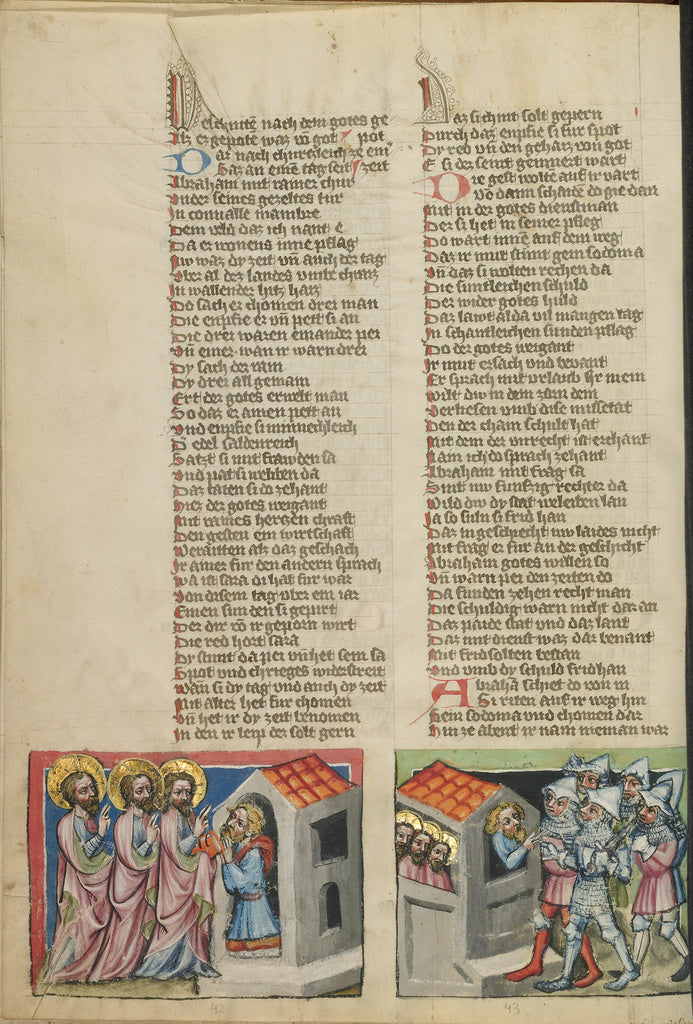 nach dem gotes ge
Alz er gepote waz vō got pot
Dar nach
Saz an einē tag seit zeit
Abraham mit rainer chur
Under seines gezeltes tur
In convalle mambre
Dem veld daz ich nant e
Da er wonens inne pflag
Nw waz dy zeit vn̄ auch der tag
Vber al dez landes
In wallender hitz haiz
Do sach er chomen drei man
Die enpfie er vn̄ pett si an
Die drei waren einander per
Vn̄ einer wan ir warn drei
Dy sach der rain
Dy drei all gemain
Ert der gotes erwelt man
So daz er ainen pett an
Vnd enpfie si minnechleich
D edel säldenreich
Satzt si mit frawden sa
Vnd pat si weliben da
Daz taten si do zehant
Hiez der gotes weigant
Mit raines hertzen chraft
Den gesten ein wirtschaft
Beraitten alz daz geschach
Ir ainer für den andern sprach
Wa ist sara di hat für war
Von disem tag vber ein iar
Einen sun den si gepirt
Der dir vō ir geporn wirt
Die red hort sara
Dy stunt da per vn̄ het sein sa
Spot vnd chrieges widerstreit
Wan si dy tag vnd auch dy zeit
Mit alter het für chomen
Vn̄ het ir dy zeit benomen
In den ir leip der solt gern
Daz si chint solt gepern
Durch daz enpfie si für spot
Dy red vn̄ den gehaiz von got
E si der seint gewert wart
Die gest wolte auf ir vart
Vō dann schaide do gie dan
Mit in der gotes dienstman
Der si het in seiner pfleg
Do wart innē auf dem weg
Daz ir mut stünt gein sodoma
Vn̄ daz si wolten rechen da
Die süntleichen schuld
Der wider gotes huld
Daz lawt alda vil mangen tag
In schantleichen sünden pflag
Do der gotes weigant
Ir mut ersach vnd bevant
Er sprach mit vrlaub hr mein
Wilt dw in dem zorn dein
Verliesen vmb dise missetat
Den der chain schult hat
Mit dem der vnrecht ist erchant
Nain ich do sprach zehant
Abraham mit frag sa
Sint nw funfzig rechter da
Wild dw dy stat weleiben lan
Ja so süln si frid han
Daz in geschiecht nw laides nicht
Mit frag er für an der geschicht
Abraham gotes willen so
Vn̄ warn per den zeiten do
Da funden zehen recht man
Die schuldig warn nicht dar an
Daz paide stat vnd daz lant
Daz mit dienst waz dar benant
Mit frid solten bestan
Vnd vmb dy schuld frid han
Abrahā schiet do von in
Si riten auf ir weg hin
Gein sodoma vnd chomen dar
Hin ze abent ir nam nieman war
42
43